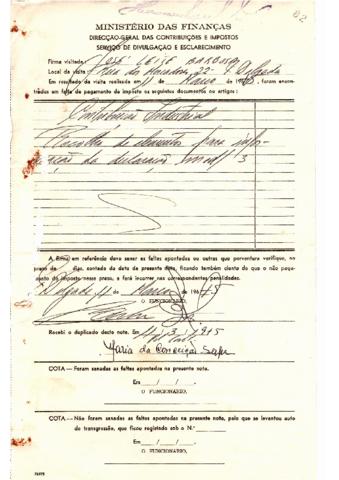 02
MINISTÉRIO DAS FINANÇAS
DIRECÇÃO-GERAL DAS CONTRIBUIÇÕES E IMPOSTOS
SERVIÇO DE DIVULGAÇÃO E ESCLARECIMENTO
Firma visitada José Leite Barbosa
Local da visita Rua da 22 - P. Delgada
Em resultado da visita realizada em 11 de Março de 19 , foram encon-
tradas em falta de pagamento de imposto os seguintes documentos ou artigos:
Contribuição Industrial
Recolha de elementos para
da declaração mod. 3
A firma em referência deve sanar as faltas apontadas ou outras que porventura verifique, no
prazo de dias, contado da data da presente nota, ficando também ciente de que o não paga-
mento do imposto nesse prazo, a fará incorrer nas correspondentes penalidades.
P. Delgada, 11 de Março de 1975
O FUNCIONÁRIO,
Recebi o duplicado desta nota. Em 11/3/1975
Maria da Conceição
COTA — Foram sanadas as faltas apontadas na presente nota.
Em / /
O FUNCIONÁRIO,
COTA — Não foram sanadas as faltas apontadas na presente nota, pelo que se levantou auto
de transgressão, que ficou registado sob o N.º
Em / /
O FUNCIONÁRIO,